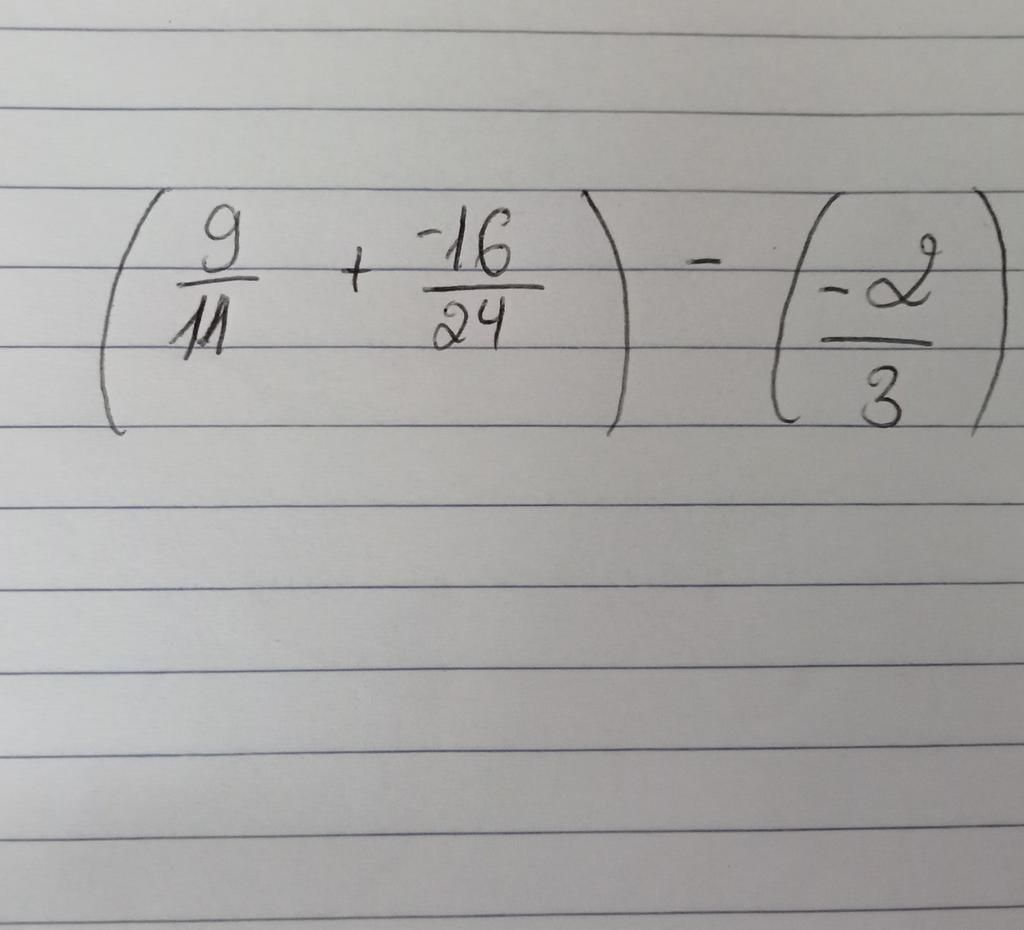 (9/11 + -16/24) - (-2/3)